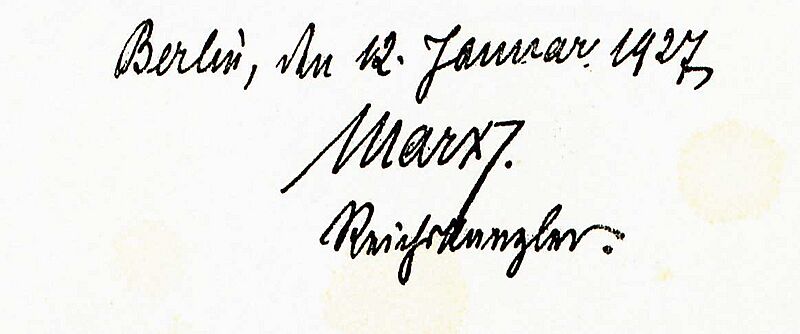 Berlin, den 12. Januar 1927,
Marx.
Reichskanzler.